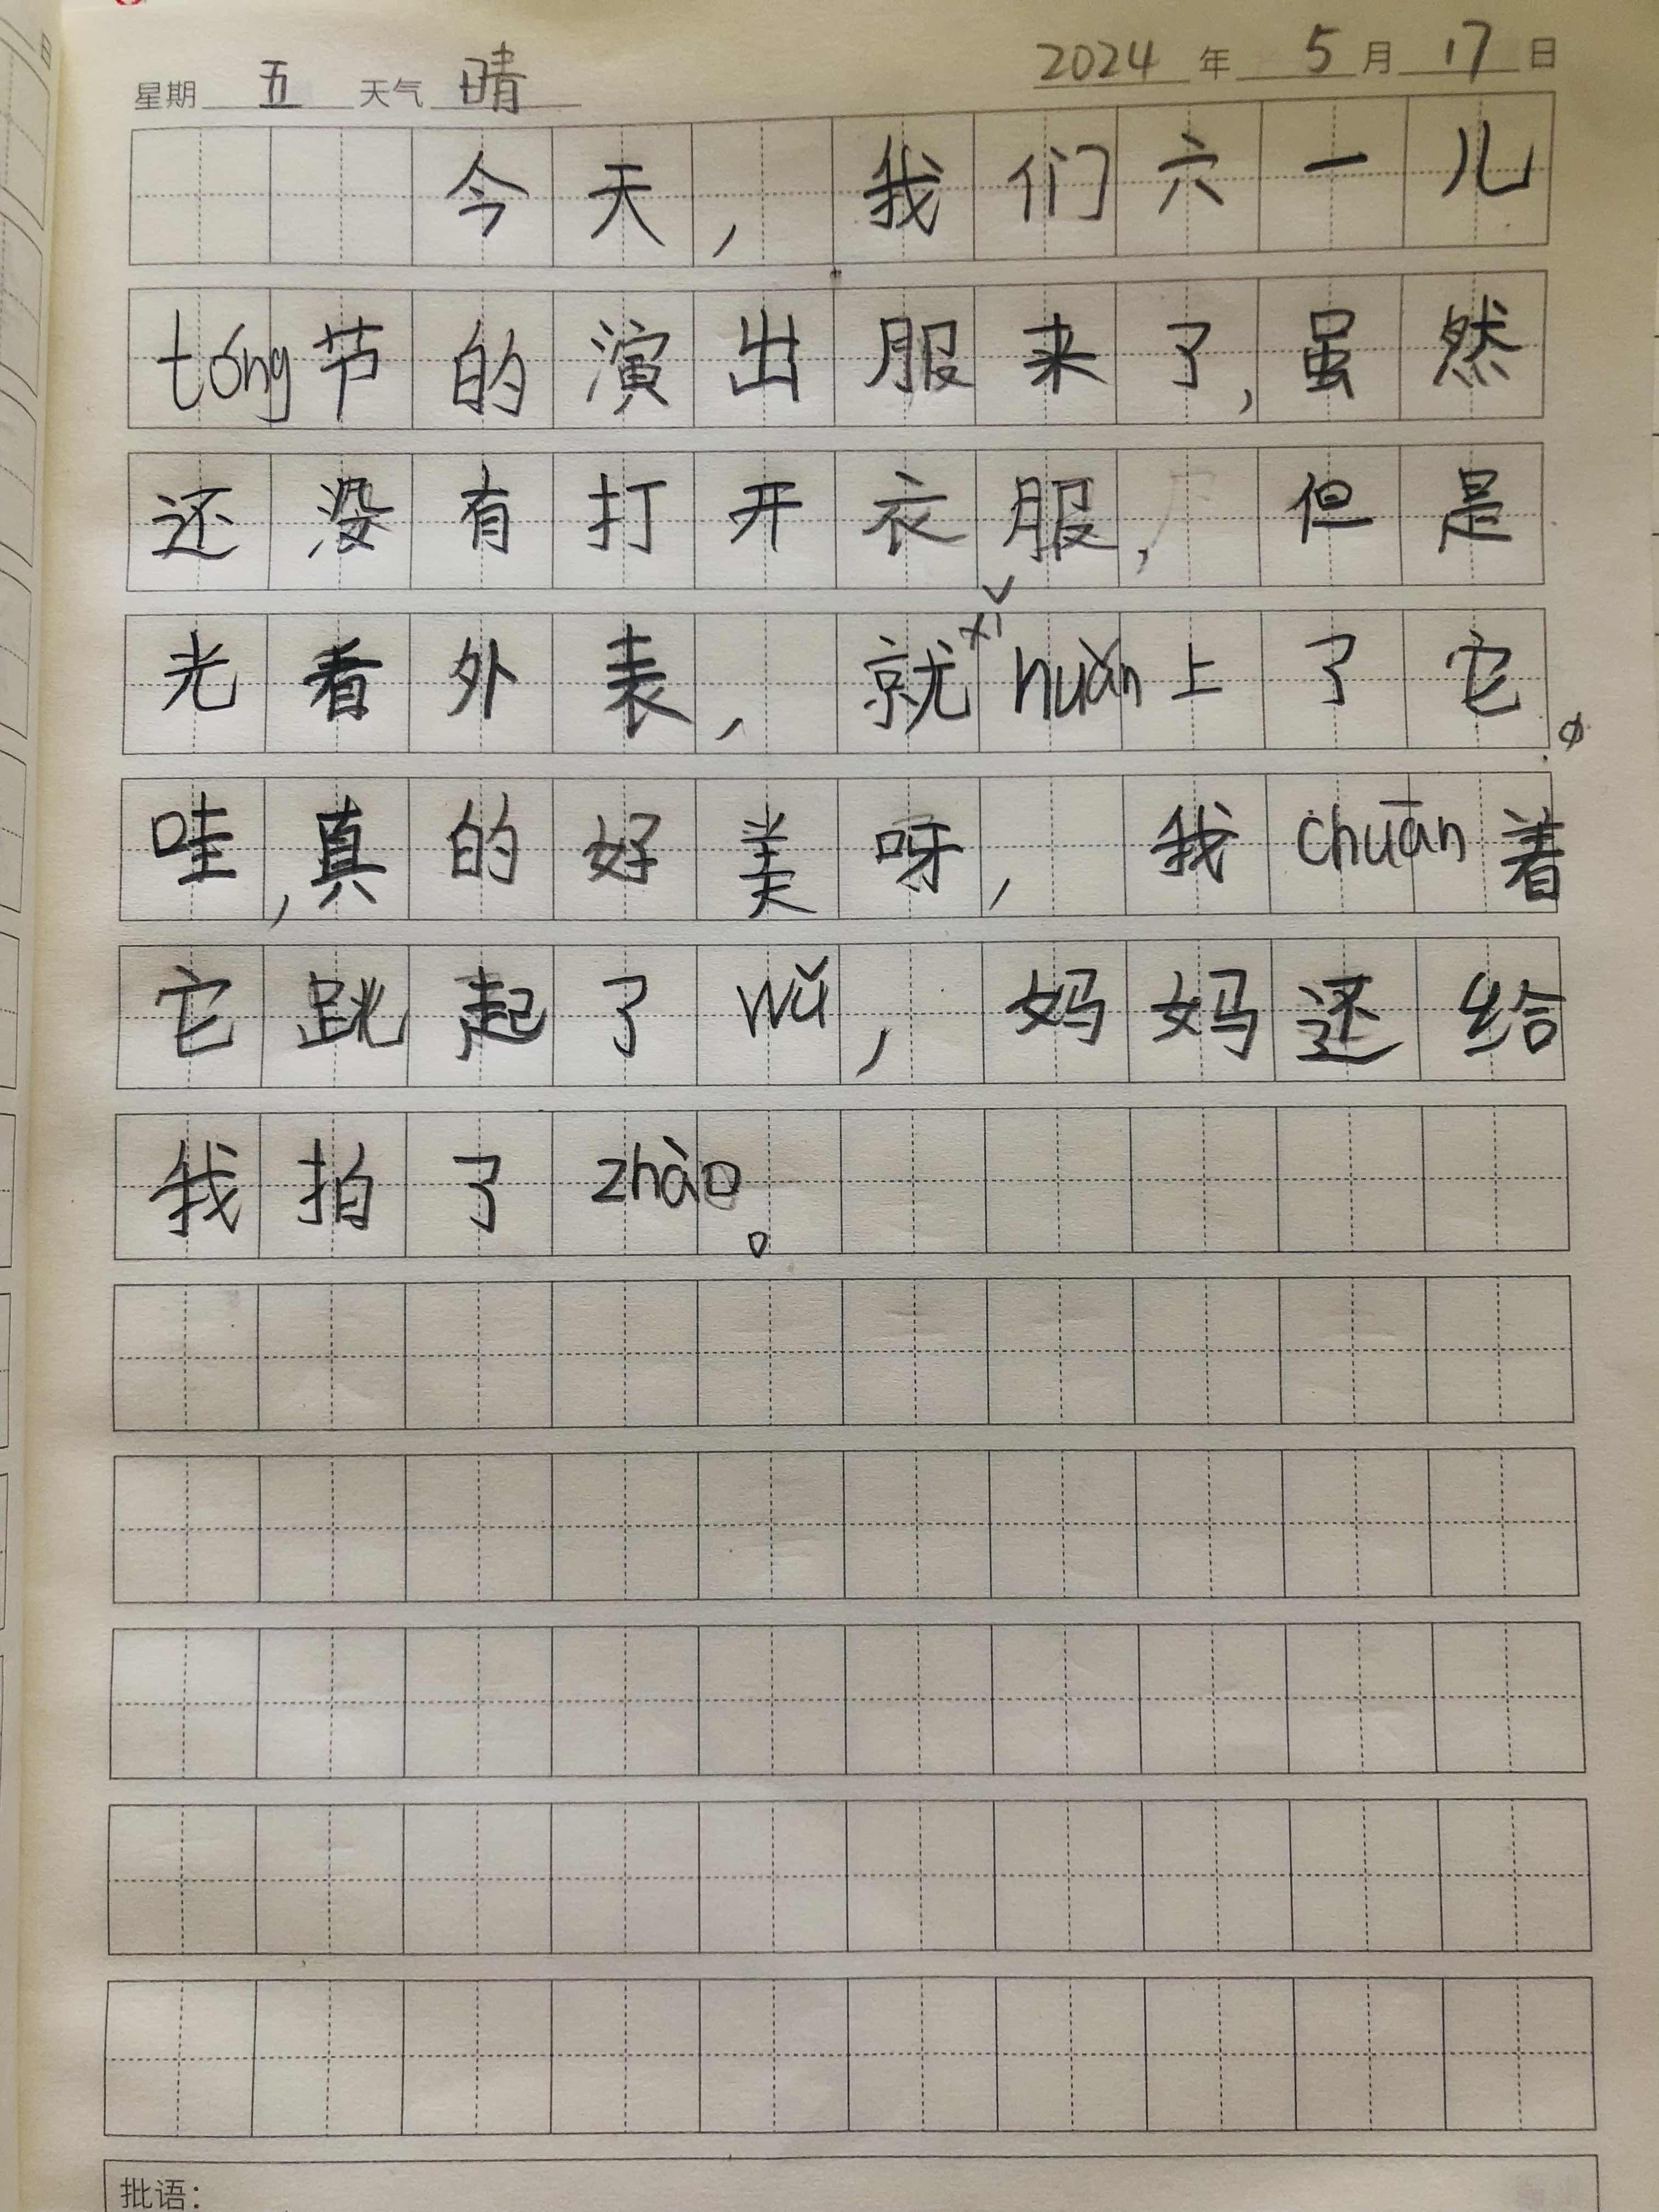 星期 五 天气 晴 2024 年 5 月 17 日
今天，我们六一儿
tóng节的演出服来了，虽然
还没有打开衣服，但是
光看外表，就xǐhuàn上了它。
哇，真的好美呀，我chuān着
它跳起了wǔ，妈妈还给
我拍了zhào。
批语：